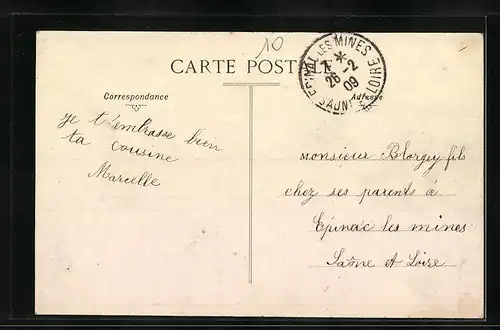 10
CARTE POSTALE
ÉPINAC-LES-MINES
7 *
26-2
09
SAÔNE-ET-LOIRE
Correspondance
Adresse
Je t'embrasse bien
ta cousine
Marcelle
Monsieur Blorgey fils
chez ses parents à
Epinac les mines
Saône et Loire